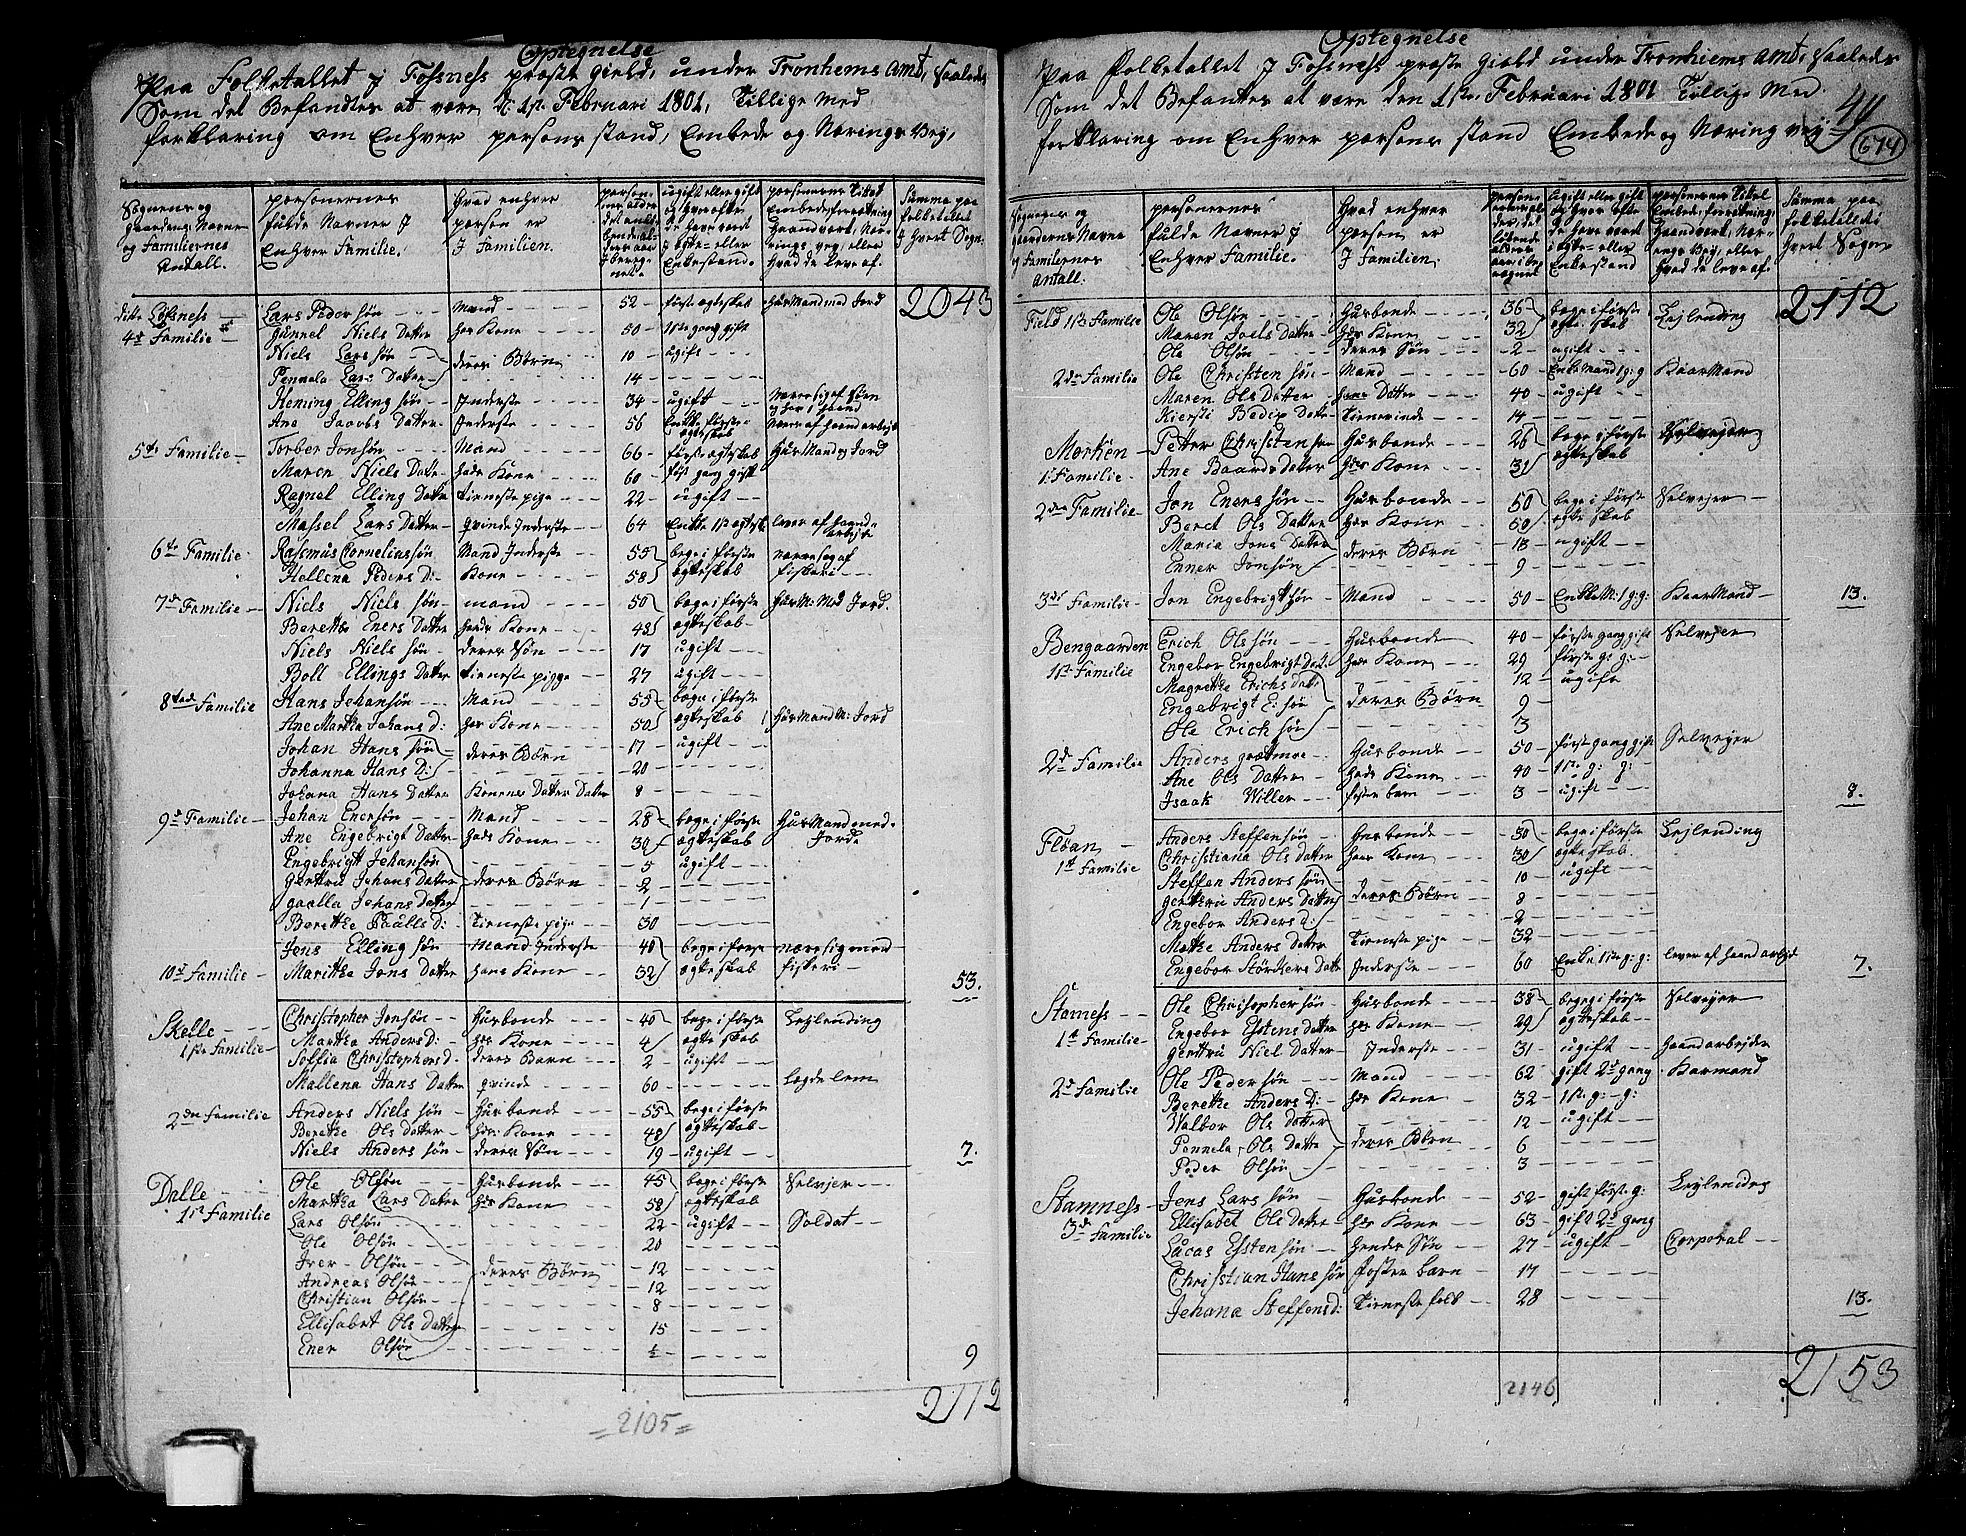 Optegnelse
Paa Folketallet j Fossness præste Gield, under Tronhems Amt, saaledes
Som det Befandtes at være d: 1ste Februari 1801, Tillige med
forklaring om Enhver persons stand, Embede og Nærings Vej,
Sognens og gaardens Navne og Familiernes Antall. | personernes fulde Navner J Enhver Familie. | Hvad enhver person er J Familien. | ugift eller gift og hvor ofte de have været j ægte= eller Enkestand. | personernes Titel Embede, forretning Haandværk, Nærings vej, eller Hvad de leve af. | Summa paa folketallet J hvert Sogn.
2043
ditto Lossness 4de Familie | Lars Peder søn | Mand | 52 | første ægteskab | HuusMand med Jord
Gunnel Niels Datter | hans Kone | 50 | 1ste gang gift
Niels Lars søn | deres Børn | 10 | ugift
Pennela Lars Datter | 14
Heming Elling søn | Inderste | 34 | ugift
Ane Jacobs Datter | Inderste | 56 | Enke første ægteskab | Nærer af haand arbejd
5te Familie | Torber Jonsøn | Mand | 66 | første ægteskab | HuusMand og Jord
Maren Niels Datter | hans Kone | 60 | først gang gift
Ragnel Elling Datter | tieneste pige | 22 | ugift
Massel Lars Datter | qvinde Inderste | 64 | Enke 1ste ægtesk | lever af haand= arbejde
6te Familie | Rasmus Corneliussøn | Mand Inderste | 55 | bege i første | nærer seg af
Hellena Peders D: | Kone | 58 | ægteskab | fiskeri
7de Familie | Niels Niels søn | mand | 50 | bege i første | HuusM: Med Jord.
Berethe Eners Datter | hands Kone | 48 | ægteskab
Niels Niels søn | deres Søn | 17 | ugift
Boll Ellings Datter | tieneste pigge | 27 | ugift
8tende Familie | Hans Jehansøn | Mand | 55 | bege i første
Ane Martha Johans D: | hans Kone | 50 | ægteskab | HuusMand M: Jord
Johan Hans søn | deres Børn | 17 | ugift
Johanna Hans D: | 20
Johana Hans Datter | Konens Datter Datter | 8
9de Familie | Jehan Enersøn | Mand | 28 | bege i første | HuusMand med
Ane Engebrigt Datter | hads Kone | 30 | ægteskab | Jord
Engebrigt Jehansøn | 5 | ugift
Gertru Jehans Datter | deres Børn | 2
gaalla Jehans Datter | 1
Berethe Paalls D: | Tieneste pige | 30
Jens Elling søn | Mand Inderste | 40 | bege i første | nære sig med
10de Familie | Marithe Jons Datter | hans Kone | 32 | ægteskab | fiskeri | 53.
Skelle 1ste Familie | Christopher Jonsøn | Huusbonde | 40 | bege i første | Lejlending
Martha Anders D: | hans Kone | 4 | ægte skab
Soffia Christophers D. | deres Barn | 2 | ugift
Mallena Hans Datter | qvinde | 60 | Lægde lem
2den Familie | Anders Niels søn | Huusbonde | 55 | bege i første
Berethe Ols Datter | hans Kone | 48 | ægteskab
Niels Anders søn | deres Søn | 19 | ugift | 7.
Dalle 1ste Familie | Ole Olsøn | Huusbonde | 45 | bege i første | Selvejer
Martha Lars Datter | hans Kone | 58 | ægteskab
Lars Olsøn | 22 | ugift | Soldat
Ole Olsøn | 20
Iver Olsøn | deres Børn | 12
Andreas Olsøn | 12
Christian Olsøn | 8
Ellisabet Ols Datter | 15
Ener Olsøn | ½ | 9
2112
=2105=
Optegnelse
Paa Folketallet J Fossness præste Gield under Tronhiems Amt, Saaledes
Som det Befantes at være den 1ste Februari 1801 Tillige Med
forklaring om Enhver persons stand Embede og Næring vej
44
674
Sognenes og gaardernes Navne og Familiernes antall. | personernes fulde Navner J Enhver Familie. | Hvad enhver person er J Familien. | Ugift eller gift og hvor ofte de have været i ægte= eller Enkestand | personernes Titel Embede, forretning, Haandværk, Nærings Vej, eller Hvad de leve af. | Summa paa folketallet i hvert Sogn
2112
Field 1ste Familie | Ole Olsøn | Huusbonde | 36 | bege i første | Lejlending
Maren Joels Datter | Hans Kone | 32 | ægte skab
Ole Olsøn | deres Søn | 2 | ugift
2den Familie | Ole Christen søn | Mand | 60 | EnkeMand 1 g: g | KaarMand
Maren Ols Datter | hans Datter | 40 | ugift
Kiersti Bedix Datter | Tieneqvinde | 14
Mørken 1 Familie | Petter Christensen | Huusbonde | 26 | bege i første | Selvejer
Ane Baards Datter | hans Kone | 31 | ægteskab
2den Familie | Jon Eners søn | Huusbonde | 50 | bege i første | Selvejer
Beret Ols Datter | hans Kone | 50 | ægte skab
Maria Jons Datter | deres Børn | 13 | ugift
Enner Jonsøn | 9
3die Familie | Jon Engebrigt søn | Mand | 50 | Enke M: 1 g: g: | KaarMand | 13.
Bengaarden 1ste Familie | Erich Olssøn | Huusbonde | 40 | første gang gift | Selvejer
Engebor Engebrigt Dat. | hans Kone | 29 | første g: g:
Magrethe Erichs Dat: | 12 | ugift
Engebrigt E: søn | deres Børn | 9
Ole Erich søn | 3
2de Familie | Anders grætmoe | Huusbonde | 50 | først gang gift | Selvejer
Ane Ols Datter | hans Kone | 40 | 1ste g: g:
Isaak Willer | foster barn | 3 | ugift | 8.
Floan 1ste Familie | Anders Steffensøn | Huusbonde | 30 | bege i første | Lejlending
Christiana Ols Datter | hans Kone | 30 | ægteskab.
Steffen Anders søn | 10 | ugift
gertru Anders Datter | deres Børn | 8
Engebor Anders D: | 2
Mathe Anders Datter | Tieneste pige | 32
Engebor Størkers Datter | Inderste | 60 | Enke 1ste g: g: | lever af haand arbejd | 7.
Stamess 1ste Familie | Ole Christopher søn | Huusbonde | 38 | bege i første | Selvejer
Engebor Estens Datter | hans Kone | 29 | ægteskab
Gertru Niel Datter | Inderste | 31 | ugift | Haandarbejder
2de Familie | Ole Peder søn | Mand | 62 | gift 2de gang | Karmand
Berethe Anders D: | hans Kone | 32 | 1ste g: g:
Walbor Ols Datter | 12 | ugift
Pennela Ols Datter | deres Børn | 6
Peder Olsøn | 3
Stamness 3de Familie | Jens Lars søn | Huusbonde | 52 | gift først: g: | Lejlending
Ellisabet Ols Datter | hans Kone | 63 | gift 2de gang
Lucas Esten søn | hendes Søn | 27 | ugift | Corporal
Christian Hans søn | foster barn | 17
Jehana Steffens D: | Tieneste folk | 28 | 13.
2146
2153